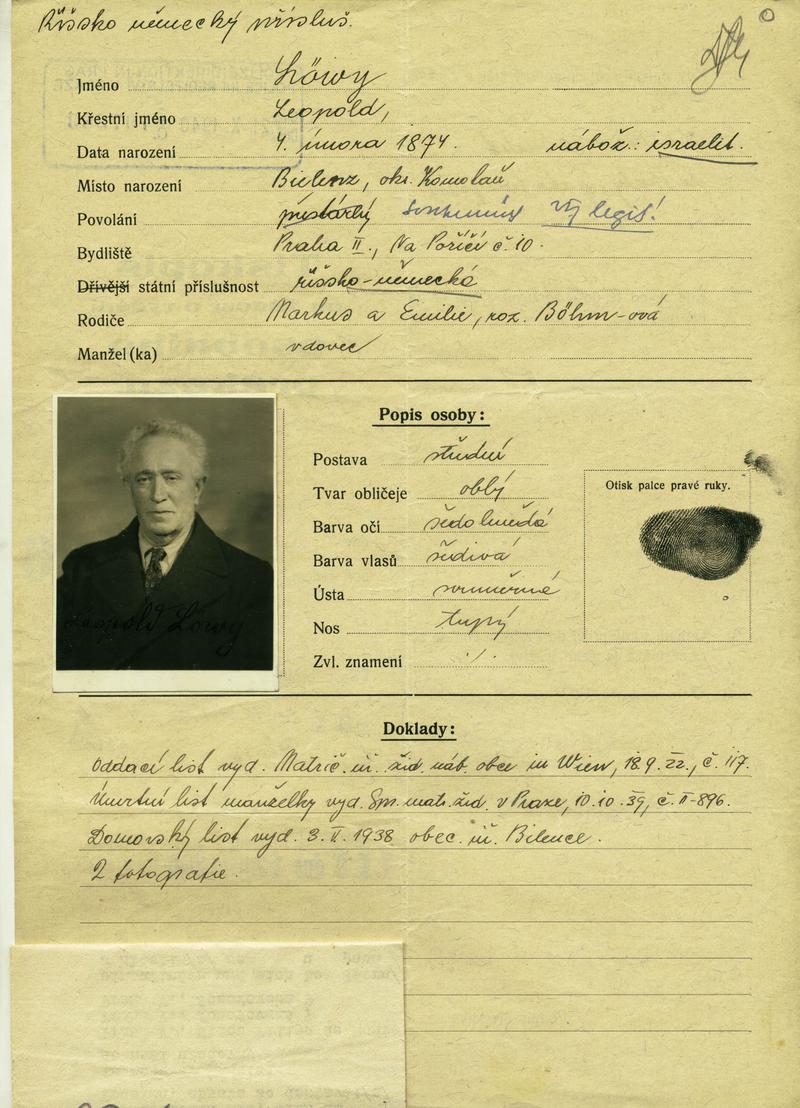 Říšsko německý přísluš.
Jméno Löwy
Křestní jméno Leopold,
Data narození 4. února 1874. nábož.: israelit.
Místo narození Bielenz, okr. Komotau
Povolání soukromý legit!
Bydliště Praha II., Na Poříčí č. 10.
Dřívější státní příslušnost říšsko-německá
Rodiče Markus a Emilie, roz. Böhm-ová
Manžel (ka) vdovec
Popis osoby:
Postava střední
Tvar obličeje oblý
Barva očí šedohnědá
Barva vlasů šedivá
Ústa souměrná
Nos tupý
Zvl. znamení ./.
Otisk palce pravé ruky.
Leopold Löwy
Doklady:
Oddací list vyd. Matrič. úř. žid. náb. obce in Wien, 18.9.22., č. 117.
Úmrtní list manželky vyd. Spr. matr. žid. v Praze, 10.10.39, č. II-896.
Domovský list vyd. 3. II. 1938 obec. úř. Bilence.
2 fotografie.